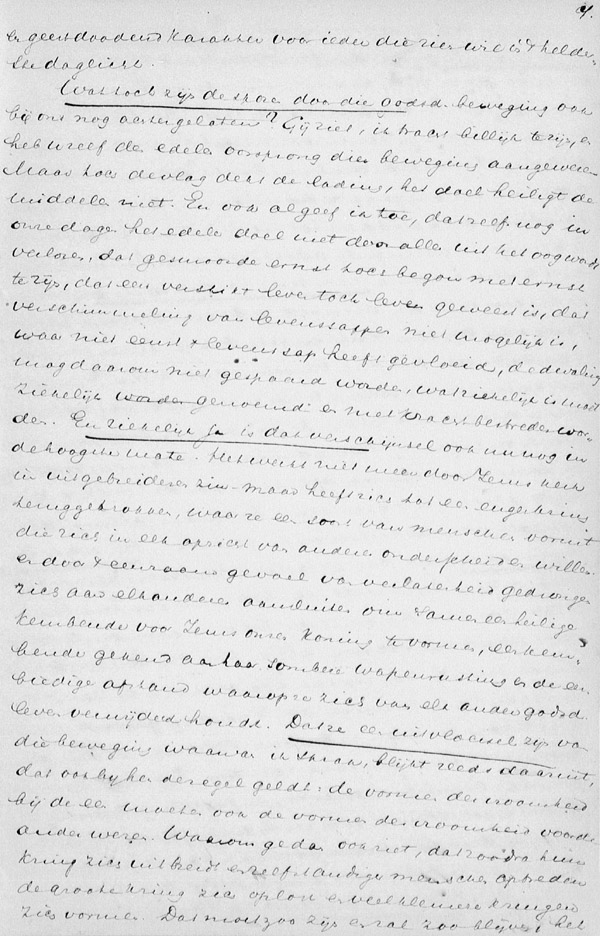 4.
en geestdoodend karakter voor ieder die zien wil is 't helder-
ste daglicht.
Wat toch zijn de sporen door die godsd. beweging ook
bij ons nog achtergelaten? Gij ziet, ik tracht billijk te zijn, en
heb u zelf den edelen oorsprong dier beweging aangewezen
Maar hoe de vlag dekt de lading, het doel heiligt de
middelen niet. En ook al geef ik toe, dat zelfs nog in
onze dagen het edele doel niet door allen uit het oog wordt
verloren, dat gesmoorde ernst toch begon met ernst
te zijn, dat een verstikt leven toch leven geweest is, dat
verschimmeling van levenssappen niet mogelijk is,
waar niet eenst levenssap heeft gevloeid, de dwaling
mag daarom niet gespaard worden, wat ziekelijk is moet
ziekelijk worden genoemd en met kracht bestreden wor-
den. En ziekelijk ja is dat verschijnsel ook nu nog in
de hoogste mate. Het werkt niet meer door Jezus kerk
in uitgebreideren zin maar heeft zich tot een engen kring
teruggetrokken, waar ze een soort van menschen vormt
die zich in elk opzicht van anderen onderscheiden willen
en door 't eenzaam gevoel van verlatenheid gedrongen
zich aan elkanderen aansluiten om samen een heilige
keurbende voor Jezus onzen Koning te vormen, een keur-
bende gekend aan haar sombere wapenrusting en de eer-
biedige afstand waarop ze zich van elk ander godsd.
leven verwijderd houdt. Dat ze een uitvloeisel zijn van
die beweging waarvan ik sprak, blijkt reeds daaruit,
dat ook bij hen de regel geldt: de vormen der vroomheid
bij de een moeten ook de vormen der vroomheid voor de
anderen wezen. Waarom gedaan ook niet, dat zoodra hun
kring zich uitbreidt en zelfstandige menschen optreden
de groote kring zich oplost en veel kleinere kringen
zich vormen. Dat moet zoo zijn en zal zoo blijven, het